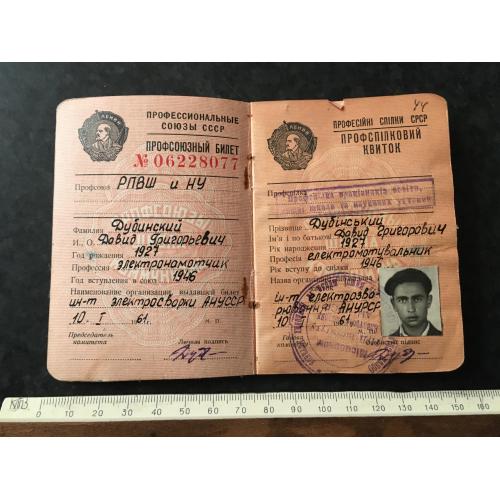 ЛЕНИН
ПРОФЕССИОНАЛЬНЫЕ
СОЮЗЫ СССР
ПРОФСОЮЗНЫЙ БИЛЕТ
№ 06228077
Профсоюз РПВШ и НУ
Фамилия Дубинский
И., О. Давид Григорьевич
Год рождения 1927
Профессия электронамотчик
Год вступления в союз 1946
Наименование организации, выдавшей билет
ин-т электросварки АНУССР
10. I. 61 г. м. п.
Председатель комитета
Личная подпись
44
ЛЕНИН
ПРОФЕСІЙНІ СПІЛКИ СРСР
ПРОФСПІЛКОВИЙ
КВИТОК
Профспілка
Прізвище Дубінський
Ім'я і по батькові Давид Григорович
Рік народження 1927
Професія електромотувальник
Рік вступу до спілки 1946
Назва
ин-т електрозва-
рювання АНУРСР
10. 61 г.
Голова
підпис
0 10 20 30 40 50 60 70 80 90 100 110 120 130 140 150 160